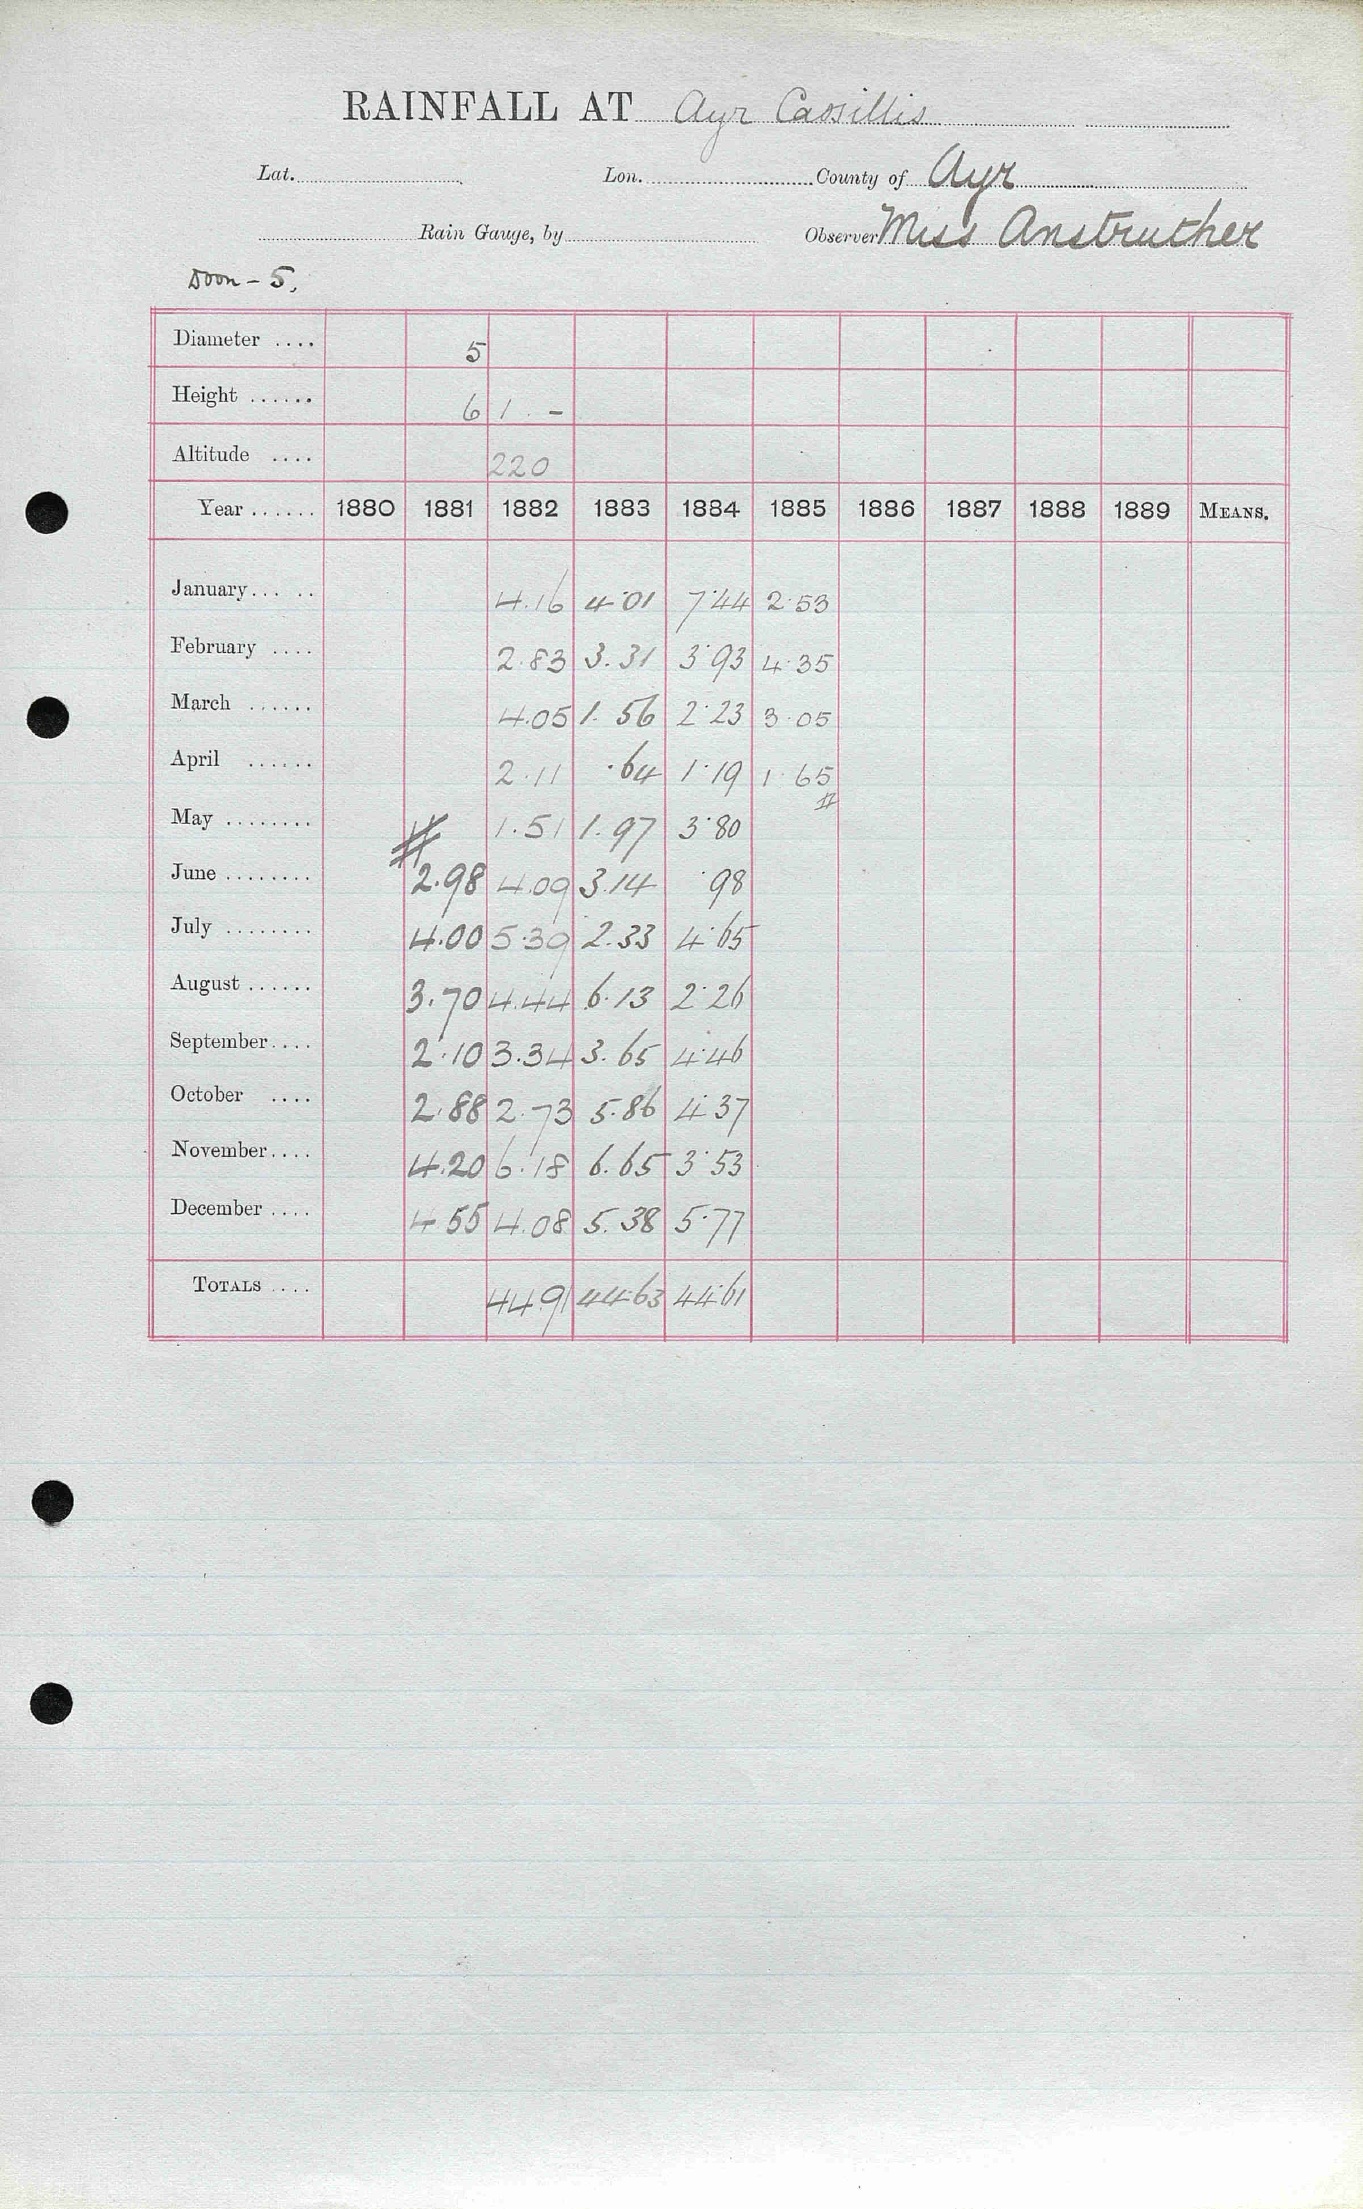 RAINFALL AT Ayr Cassillis
Lat. Lon. County of Ayr
Rain Gauge, by Observer Miss Anstruther
Doon - 5.
Diameter .... 5
Height ...... 6 1 . -
Altitude .... 220
Year ...... 1880 1881 1882 1883 1884 1885 1886 1887 1888 1889 MEANS.
January... .. 4.16 4.01 7.44 2.53
February .... 2.83 3.31 3.93 4.35
March ...... 4.05 1.56 2.23 3.05
April ...... 2.11 .64 1.19 1.65
May ........ 1.51 1.97 3.80
June ........ 2.98 4.09 3.14 .98
July ........ 4.00 5.39 2.33 4.65
August ...... 3.70 4.44 6.13 2.26
September.... 2.10 3.34 3.65 4.46
October .... 2.88 2.73 5.86 4.37
November.... 4.20 6.18 6.65 3.53
December .... 4 55 4.08 5.38 5.77
TOTALS .... 44.91 44.63 44.61